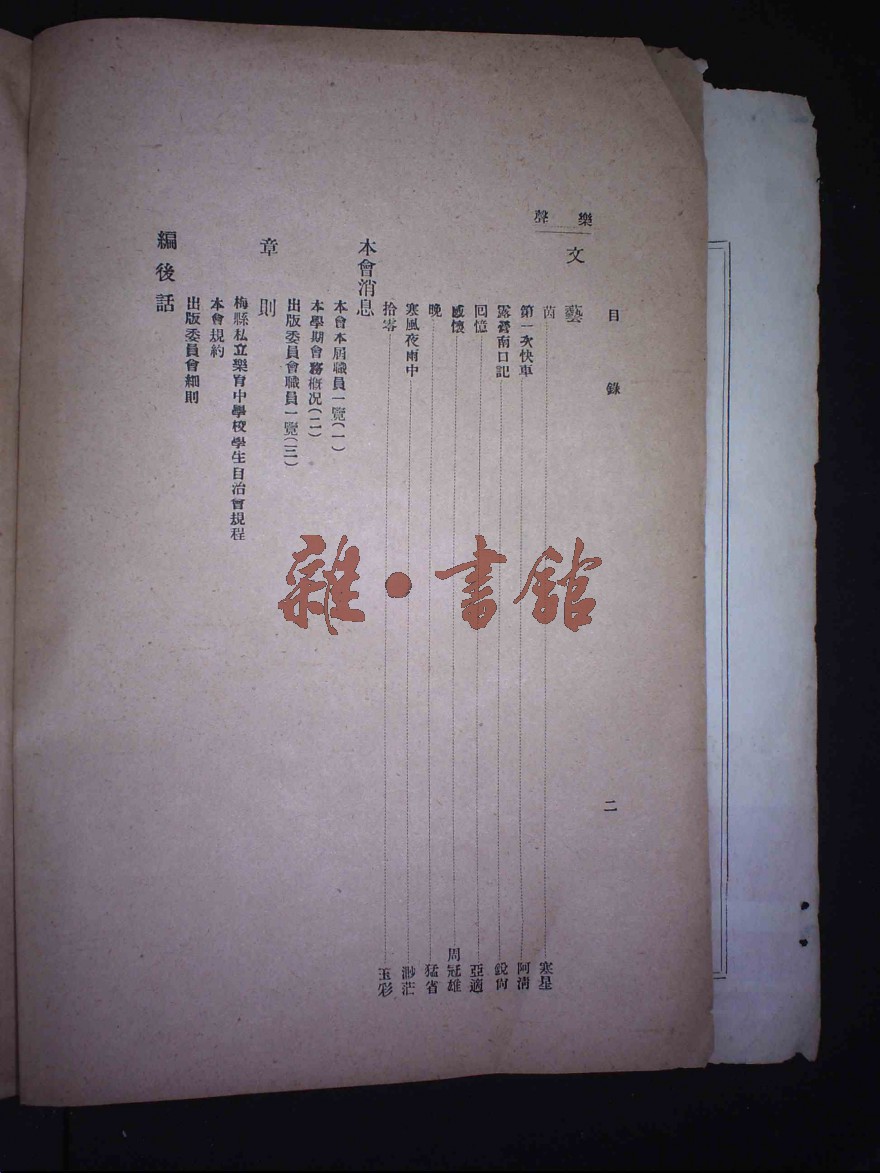 樂聲
目錄
二
文藝
茵 寒星
第一次快車 阿淸
露營南口記 銳鋒
回憶 亞適
感懷 周冠雄
晚 猛省
寒風夜雨中 渺茫
拾零 玉彩
本會消息
本會本屆職員一覽(一)
本學期會務槪況(二)
出版委員會職員一覽(三)
章則
梅縣私立樂育中學校學生自治會規程
本會規約
出版委員會細則
編後話
雜·書館